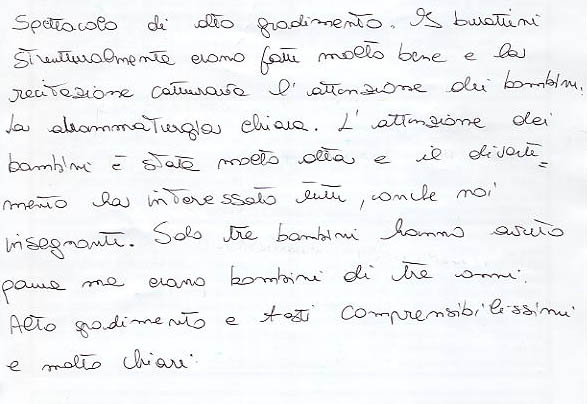 Spettacolo di alto gradimento. I burattini
strutturalmente erano fatti molto bene e la
recitazione catturava l'attenzione dei bambini.
La drammaturgia chiara. L'attenzione dei
bambini è stata molto alta e il diverti=
mento ha interessato tutti, anche noi
insegnanti. Solo tre bambini hanno avuto
paura ma erano bambini di tre anni.
Alto gradimento e testi comprensibilissimi
e molto chiari.